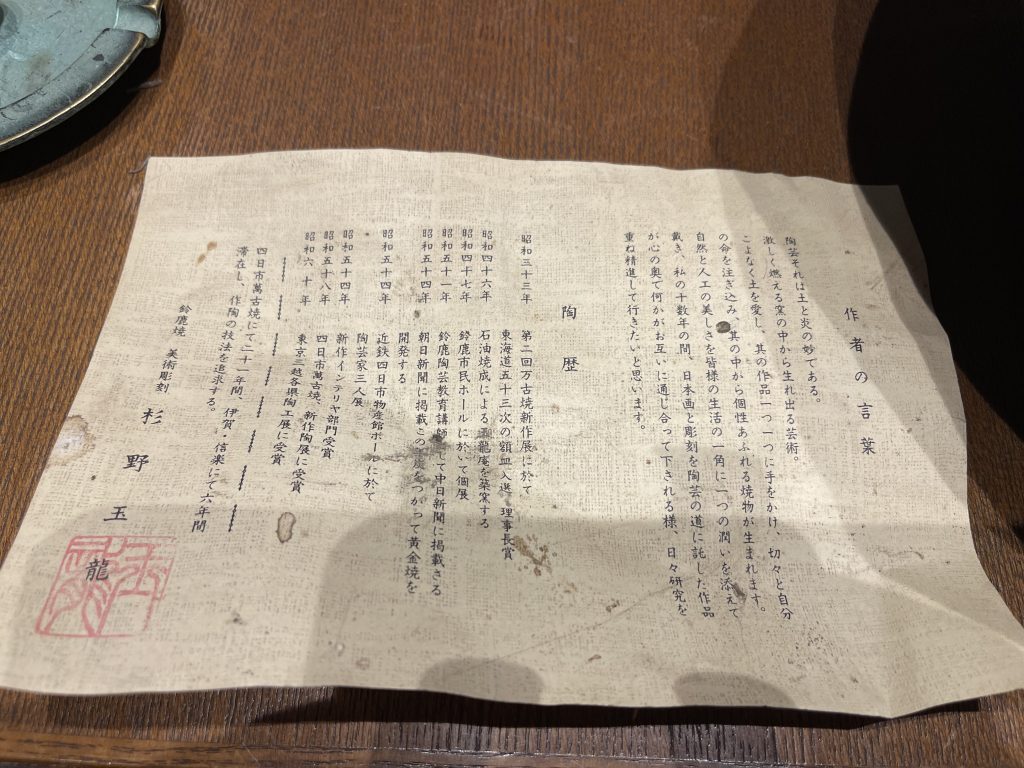 作者の言葉
陶芸それは土と炎の妙である。
激しく燃える窯の中から生れ出る芸術。
こよなく土を愛し、其の作品一つ一つに手をかけ、切々と自分
の命を注ぎ込み、其の中から個性あふれる焼物が生まれます。
自然と人工の美しさを皆様の生活の一角に一つの潤いを添えて
戴き、私の十数年の間、日本画と彫刻を陶芸の道に託した作品
が心の奥で何かがお互いに通じ合って下される様、日々研究を
重ね精進して行きたいと思います。
陶歴
昭和三十三年 第二回万古焼新作展に於て
東海道五十三次の額皿入選 理事長賞
昭和四十六年 石油焼成による玉龍庵を築窯する
昭和四十七年 鈴鹿市民ホールに於いて個展
昭和五十一年 鈴鹿陶芸教育講師として中日新聞に掲載さる
昭和五十四年 朝日新聞に掲載さる をつかって黄金焼を
開発する
昭和五十四年 近鉄四日市物産館ホールに於て
陶芸家三人展
昭和五十四年 新作インテリヤ部門受賞
昭和五十八年 四日市萬古焼、新作陶展に受賞
昭和六十年 東京三越各県陶工展に受賞
四日市萬古焼にて二十一年間、伊賀・信楽にて六年間
滞在し、作陶の技法を追求する。
鈴鹿焼 美術彫刻 杉野玉龍